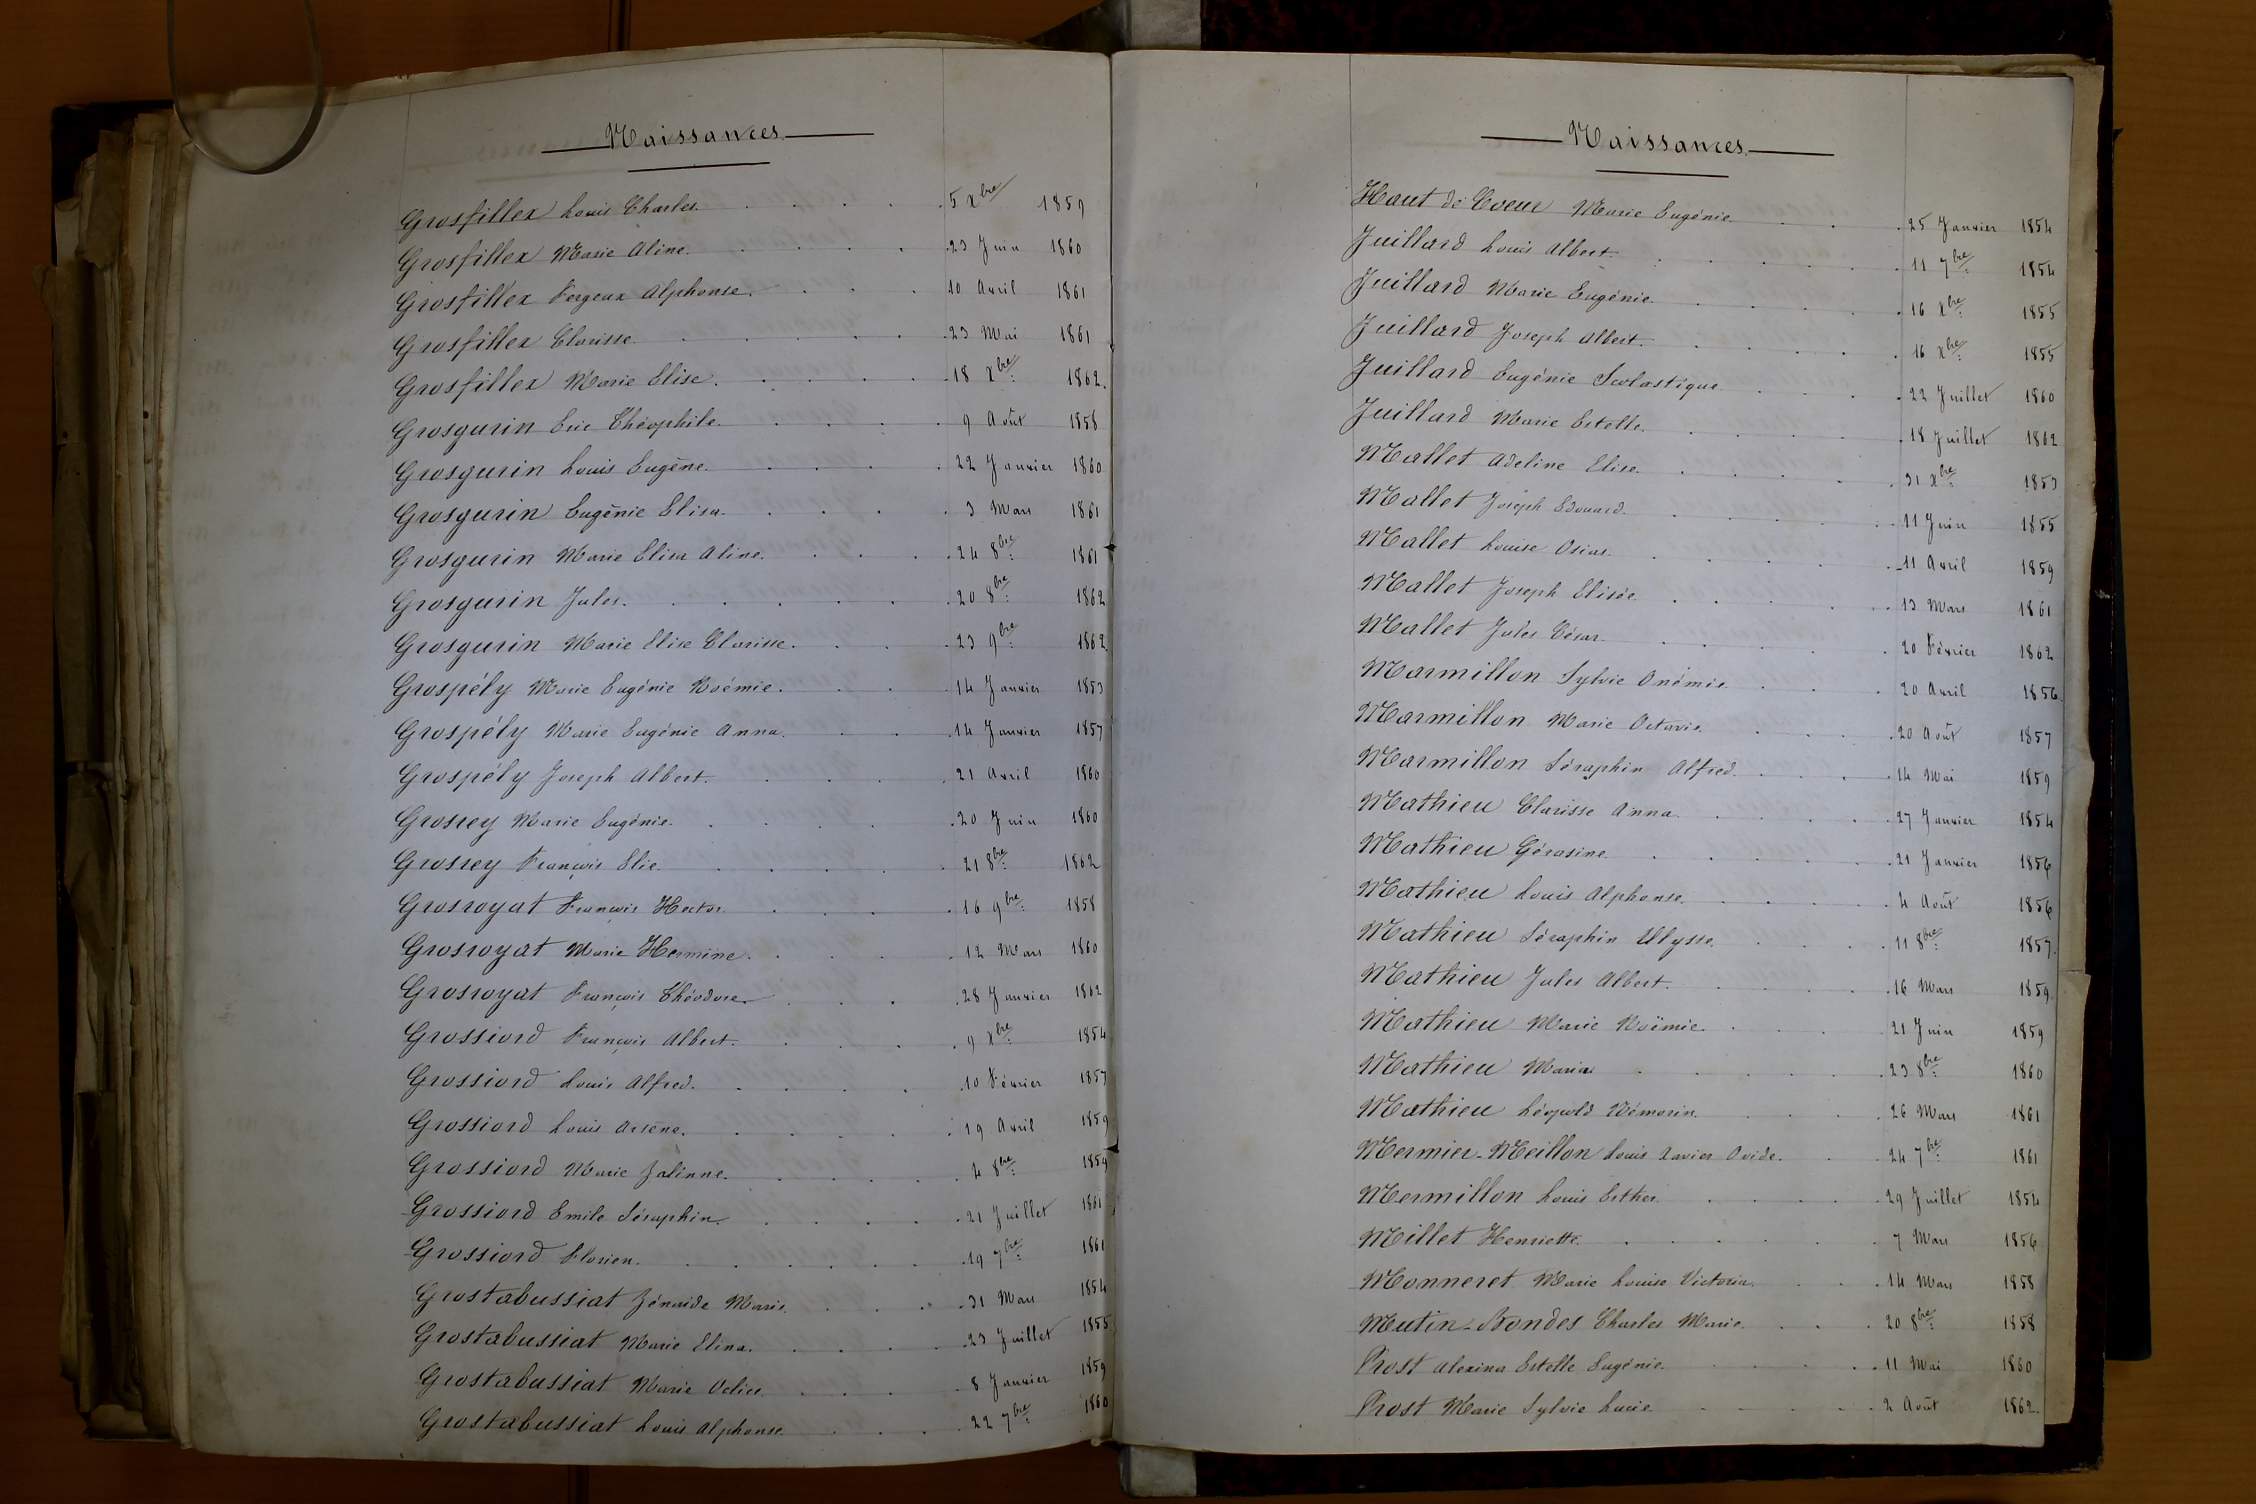 Naissances
Grosfillex Louis Charles. 5 Xbre 1859
Grosfillex Marie Aline. 23 Juin 1860
Grosfillex Fergeux Alphonse. 10 Avril 1861
Grosfillex Clarisse 23 Mai 1861
Grosfillex Marie Elise. 18 Xbre 1862.
Grosgurin Eric Théophile. 9 Août 1858
Grosgurin Louis Eugène. 22 Janvier 1860
Grosgurin Eugènie Elisa. 3 Mars 1861
Grosgurin Marie Elisa Aline. 24 8bre 1861
Grosgurin Jules. 20 8bre 1862
Grosgurin Marie Elise Clarisse. 23 9bre 1862
Grospély Marie Eugénie Noémie. 14 Janvier 1853
Grospély Marie Eugénie Anna. 14 Janvier 1857
Grospély Joseph Albert. 21 Avril 1860
Grosrey Marie Eugénie. 20 Juin 1860
Grosrey François Elie. 21 8bre 1862
Grosroyat François Hector 16 9bre 1858
Grosroyat Marie Hermine. 12 Mars 1860
Grosroyat François Théodore. 28 Janvier 1862
Grossiord François Albert. 9 Xbre 1854
Grossiord Louis Alfred. 10 Février 1857
Grossiord Louis Arsène. 19 Avril 1859
Grossiord Marie Julinne. 4 8bre 1859
Grossiord Emile Séraphin. 21 Juillet 1861
Grossiord Florien. 19 7bre 1861
Grostabussiat Zénaïde Marie 31 Mars 1854
Grostabussiat Marie Elina. 23 Juillet 1855
Grostabussiat Marie 8 Janvier 1859
Grostabussiat Louis Alphonse 22 7bre 1860
Naissances
Haut de Coeur Marie Eugénie 25 Janvier 1854
Juillard Louis Albert. 11 7bre 1854
Juillard Marie Eugénie. 16 Xbre 1855
Juillard Joseph Albert. 16 Xbre 1855
Juillard Eugénie Scolastique 22 Juillet 1860
Juillard Marie Estelle. 18 Juillet 1862
Mallet Adeline Elise. 31 Xbre 1853
Mallet Joseph Edouard. 11 Juin 1855
Mallet Louise 11 Avril 1859
Mallet Joseph Elisée 13 Mars 1861
Mallet Jules César. 20 Février 1862
Marmillon Sylvie Onémie 20 Avril 1856
Marmillon Marie Octavie. 20 Août 1857
Marmillon Séraphin Alfred. 14 Mai 1859
Mathieu Clarisse Anna 27 Janvier 1854
Mathieu Gérasine 21 Janvier 1856
Mathieu Louis Alphonse. 4 Août 1856
Mathieu Séraphin Ulysse. 11 8bre 1857.
Mathieu Jules Albert. 16 Mars 1859
Mathieu Marie Noëmie. 21 Juin 1859
Mathieu Maria 23 8bre 1860
Mathieu Léopold Némorin. 26 Mars 1861
Mermier-Meillon Louis Xavier Ovide. 24 7bre 1861
Mermillon Louis Esther. 29 Juillet 1854
Millet Henriette. 7 Mars 1856
Monneret Marie Louise Victoria. 14 Mars 1858
Mutin-Bondes Charles Marie. 20 8bre 1858
Prost Alexina Estelle Eugénie. 11 Mai 1860
Prost Marie Sylvie Lucie 2 Août 1862.